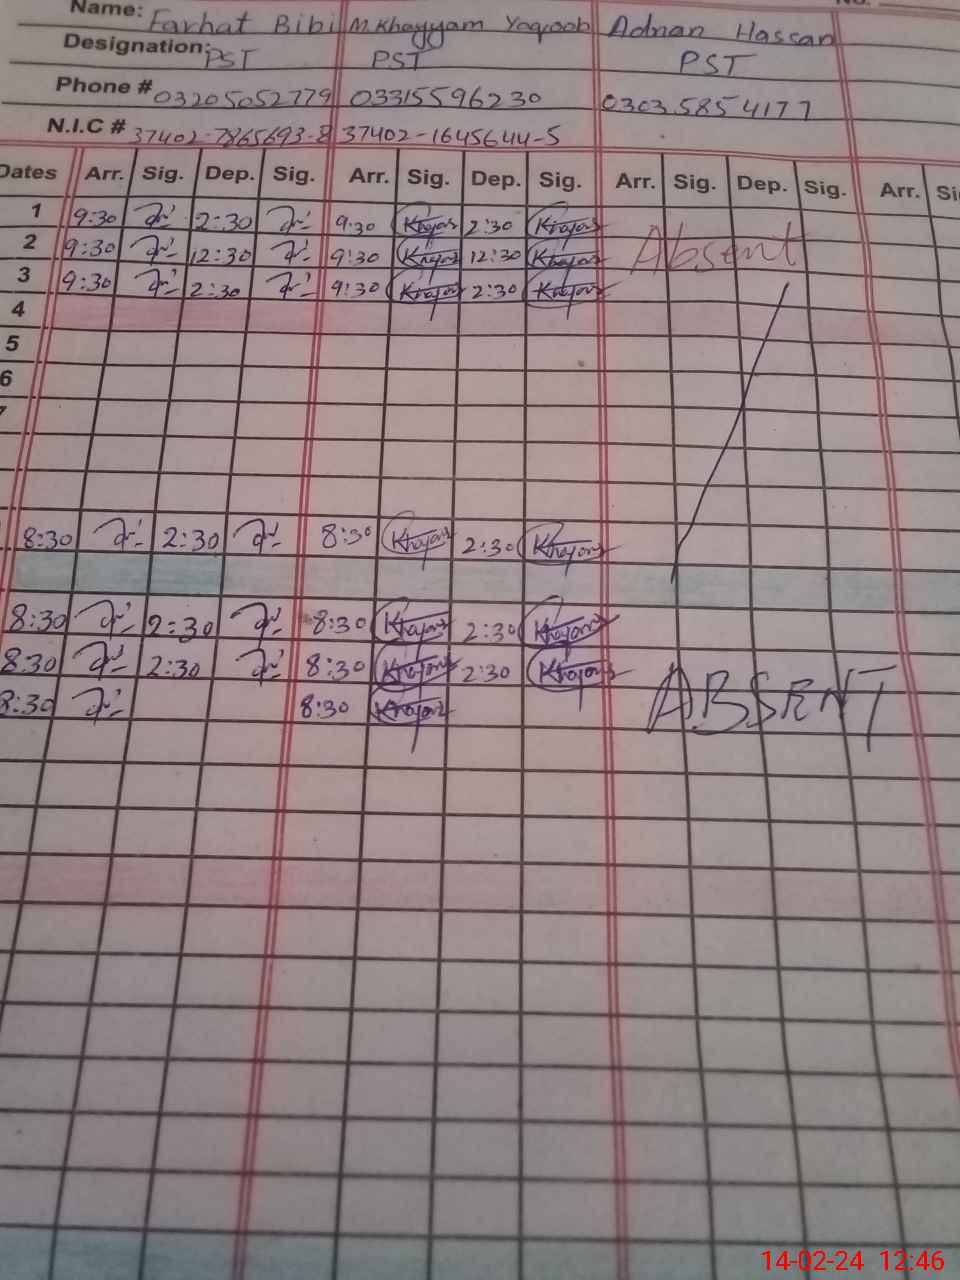 No.
Name: Farhat Bibi M. Khayyam Yaqoob Adnan Hassan
Designation: PST PST PST
Phone # 03205052779 03315596230 0303 5854177
N.I.C # 37402-7865693-8 37402-1645644-5
Dates Arr. Sig. Dep. Sig. Arr. Sig. Dep. Sig. Arr. Sig. Dep. Sig. Arr.
1 9:30 2:30 9:30 Khayam 2:30 Khayam Absent
2 9:30 12:30 9:30 Khayam 12:30 Khayam
3 9:30 2:30 9:30 Khayam 2:30 Khayam
4
5
6
7
8:30 2:30 8:30 Khayam 2:30 Khayam
8:30 2:30 8:30 Khayam 2:30 Khayam
8:30 2:30 8:30 Khayam 2:30 Khayam ABSENT
8:30 8:30 Khayam
14-02-24 12:46